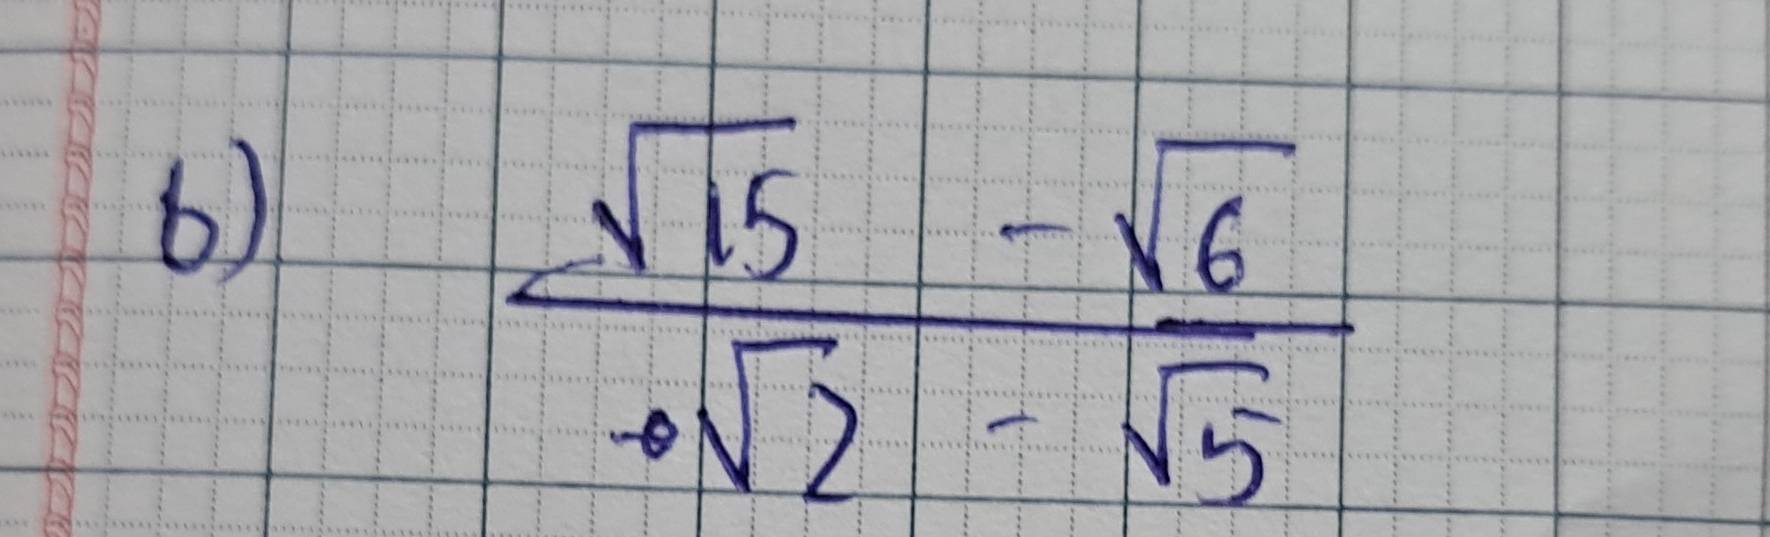 b) √15 - √6
√2 - √5